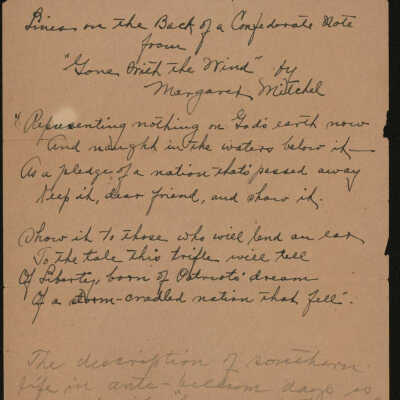 Lines on the Back of a Confederate Note
from
"Gone With the Wind" by
Margaret Mitchel
"Representing nothing on God's earth now
And naught in the waters below it—
As a pledge of a nation that's passed away
Keep it, dear friend, and show it.
Show it to those who will lend an ear
To the tale this trifle will tell
Of Liberty, born of Patriots' dream
Of a storm-cradled nation that fell".
The description of southern
life in ante-bellum days is